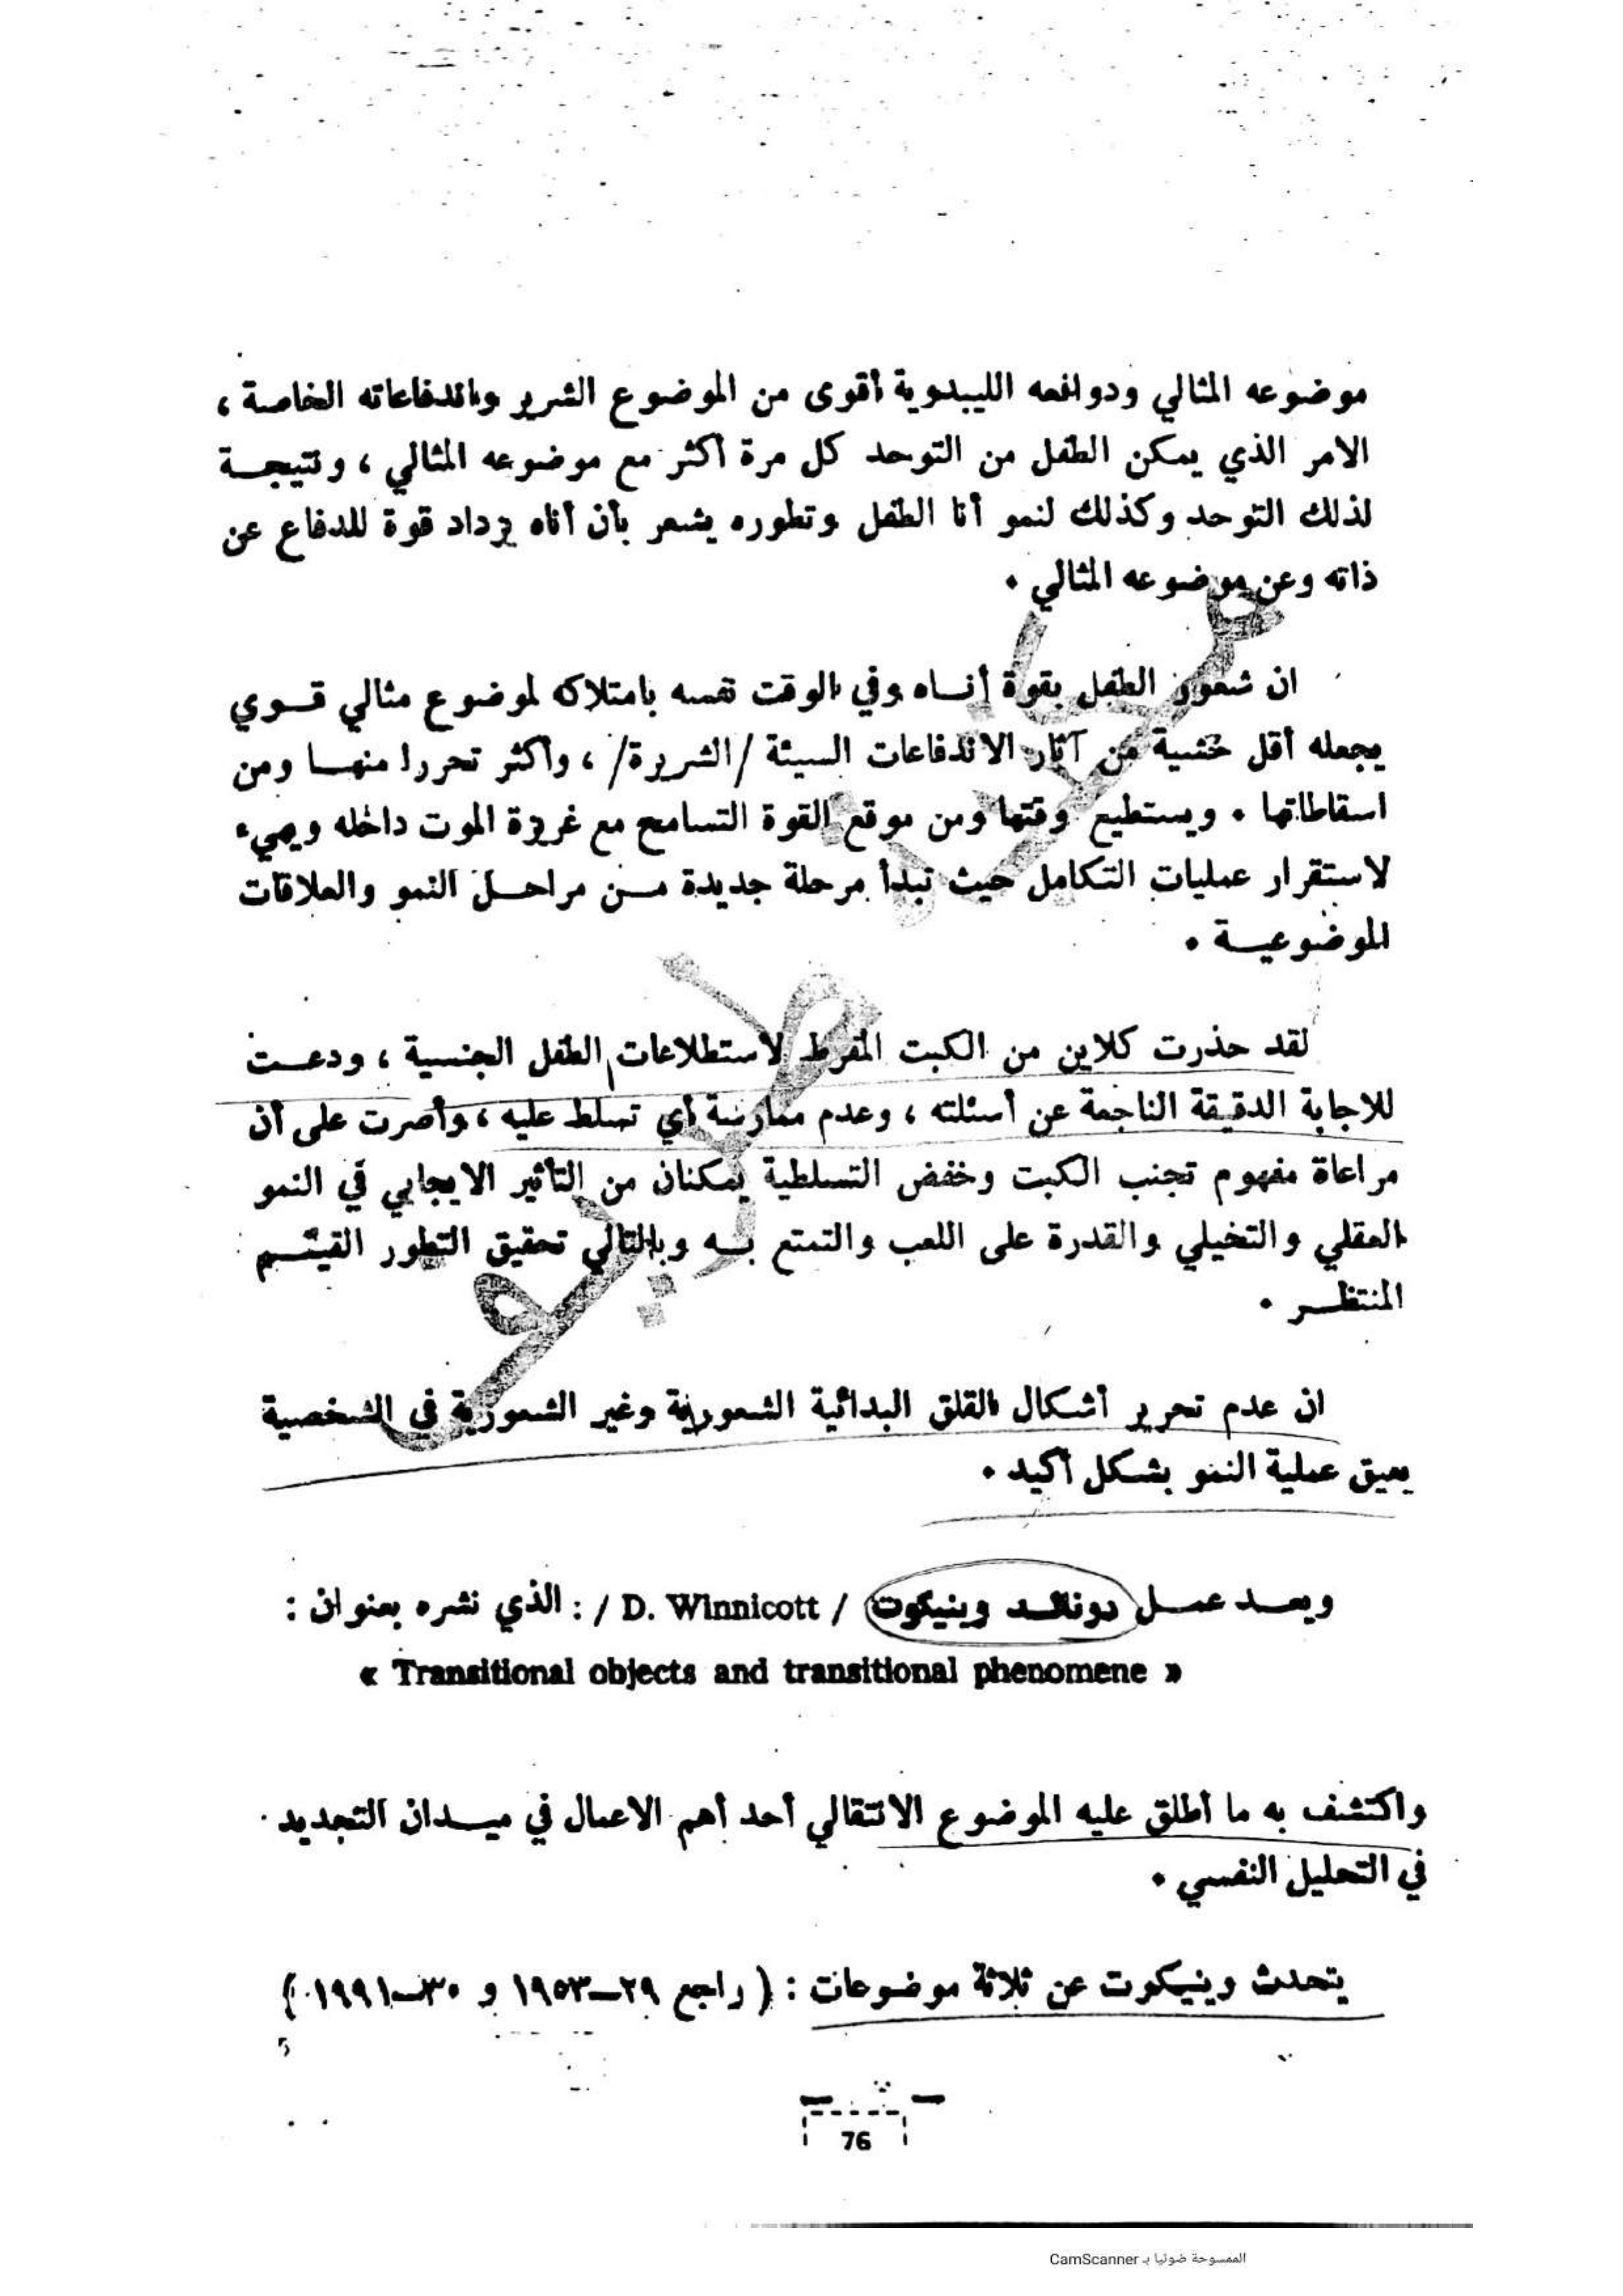 موضوعه المثالي ودوافعه الليبدوية أقوى من الموضوع الشرير واندفاعاته الخاصة ،
الامر الذي يمكن الطفل من التوحد كل مرة أكثر مع موضوعه المثالي ، ونتيجـة
لذلك التوحد وكذلك لنمو أنا الطفل وتطوره يشعر بأن أناه يزداد قوة للدفاع عن
ذاته وعن موضوعه المثالي .
ان شعور الطفل بقوة أنـاه وفي الوقت نفسه بامتلاكه لموضوع مثالي قـوي
يجعله أقل خشية من آثار الاندفاعات السيئة /الشريرة/ ، وأكثر تحررا منهـا ومن
اسقاطاتها . ويستطيع وقتها ومن موقع القوة التسامح مع غريزة الموت داخله ويهيء
لاستقرار عمليات التكامل حيث تبدأ مرحلة جديدة مـن مراحـل النمو والعلاقات
الموضوعيـة .
لقد حذرت كلاين من الكبت المفرط لاستطلاعات الطفل الجنسية ، ودعـت
للاجابة الدقيقة الناجمة عن أسئلته ، وعدم ممارسة أي تسلط عليه ، وأصرت على أن
مراعاة مفهوم تجنب الكبت وخفض التسلطية يمكنان من التأثير الايجابي في النمو
العقلي والتخيلي والقدرة على اللعب والتمتع بـه وبالتالي تحقيق التطور القيّـم
المنتظـر .
ان عدم تحرير أشكال القلق البدائية الشعورية وغير الشعورية في الشخصية
يعيق عملية النمو بشكل أكيد .
ويعـد عمـل دونالـد وينيكوت / D. Winnicott / : الذي نشره بعنوان :
« Transitional objects and transitional phenomene »
واكتشف به ما أطلق عليه الموضوع الانتقالي أحد أهم الاعمال في ميـدان التجديد
في التحليل النفسي .
يتحدث وينيكوت عن ثلاثة موضوعات : ( راجع ٢٩ــ١٩٥٣ و ٣٠ــ١٩٩١ )
76
الممسوحة ضوئيا بـ CamScanner